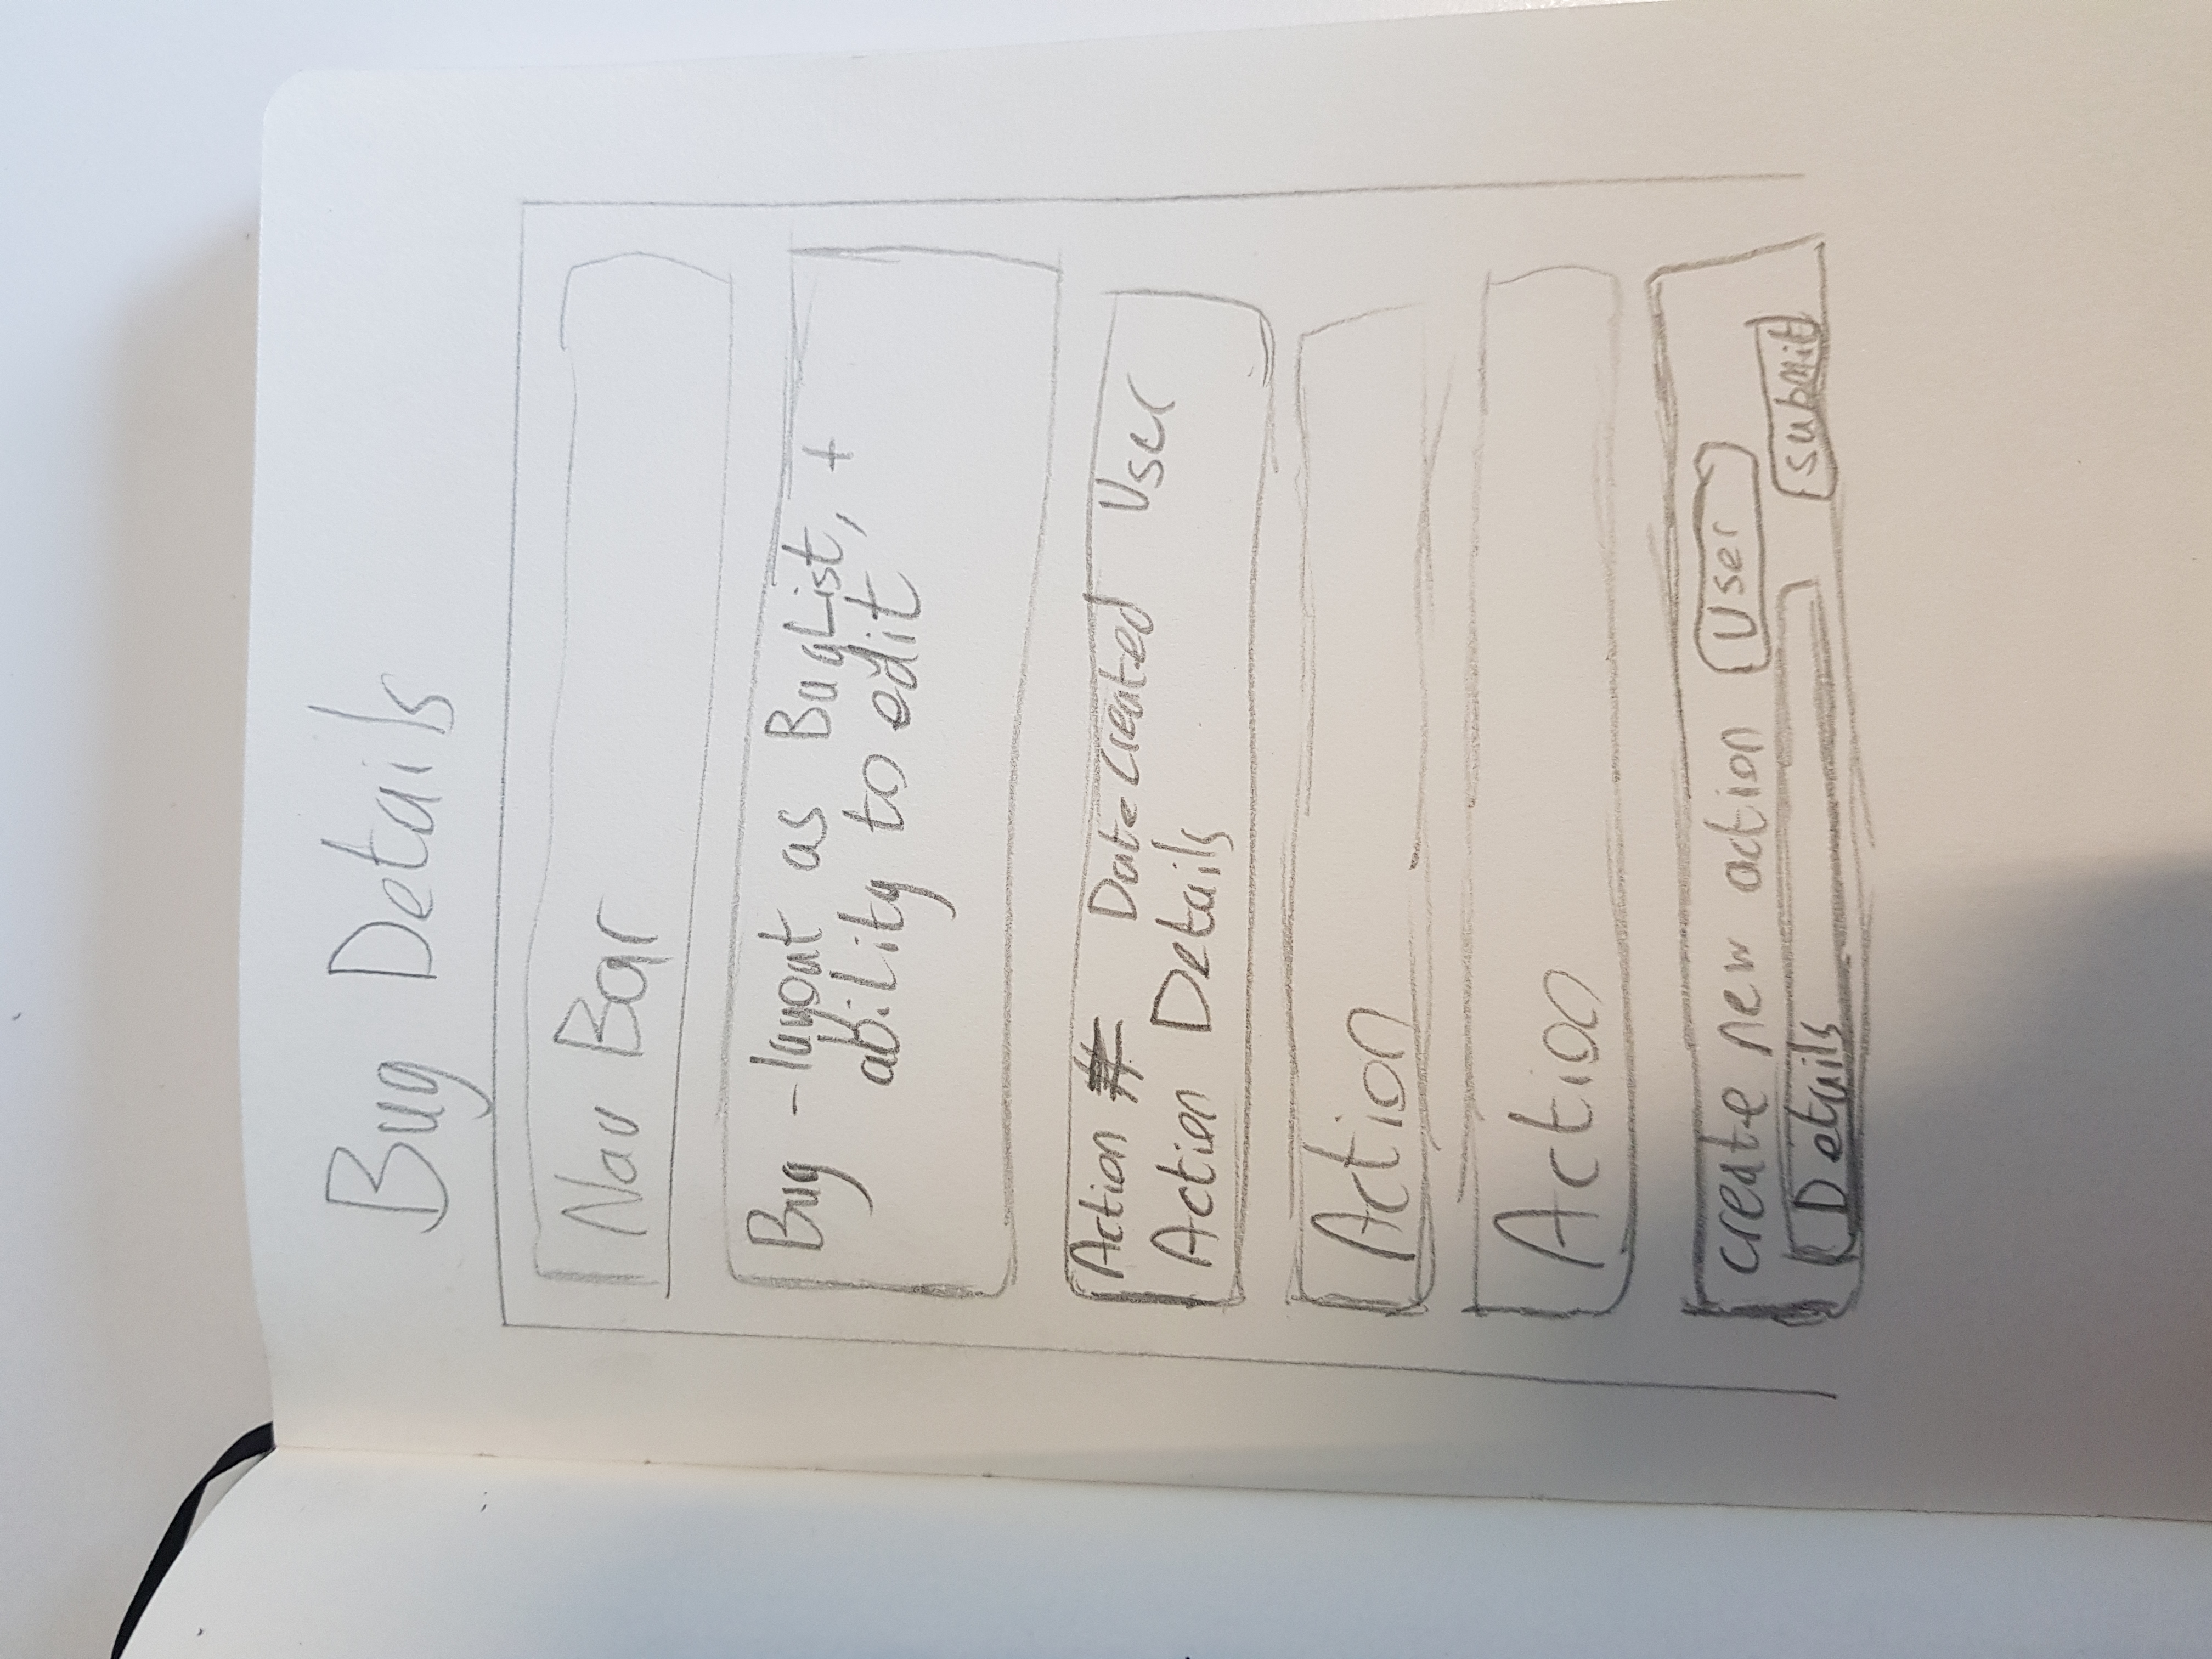 Bug Details
Nav Bar
Bug - layout as BugList, +
ability to edit
Action DateCreated User
Action Details
Action
Action
create new action User
Details submit